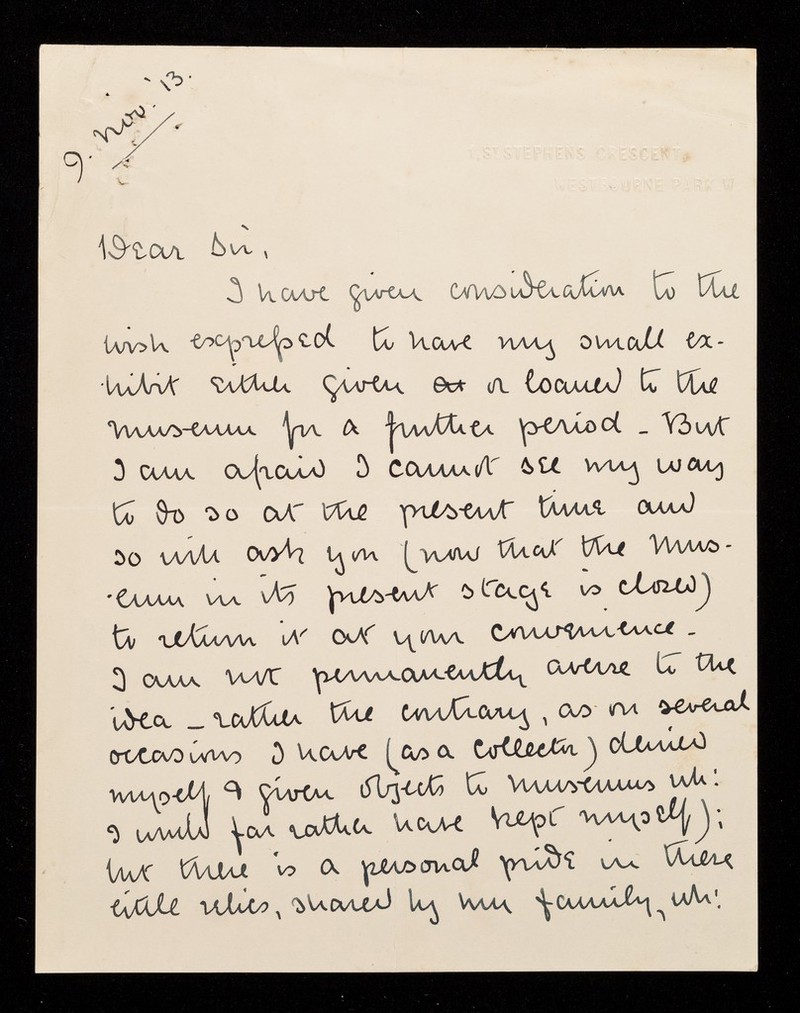 9. Nov. '13.
1, ST STEPHENS CRESCENT,
WESTBOURNE PARK W
Dear Sir,
I have given consideration to the
wish expressed to have my small ex-
hibit either given or or loaned to the
museum for a further period - But
I am afraid I cannot see my way
to do so at the present time and
so will ask you (now that the Mus-
-eum in its present stage is closed)
to return it at your convenience -
I am not permanently averse to the
idea - rather the contrary, as on several
occasions I have (as a collector) denied
myself & given objects to museums wh:
I would far rather have kept myself);
but there is a personal pride in these
little relics, shared by my family, wh: